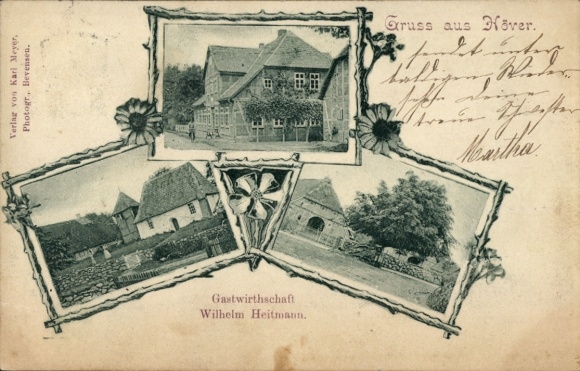 Gruss aus Höver.
sendet unter
baldigem Wieder-
sehn Deine
treue Schwester
Martha.
Verlag von Karl Meyer,
Photogr., Bevensen.
Gastwirthschaft
Wilhelm Heitmann.